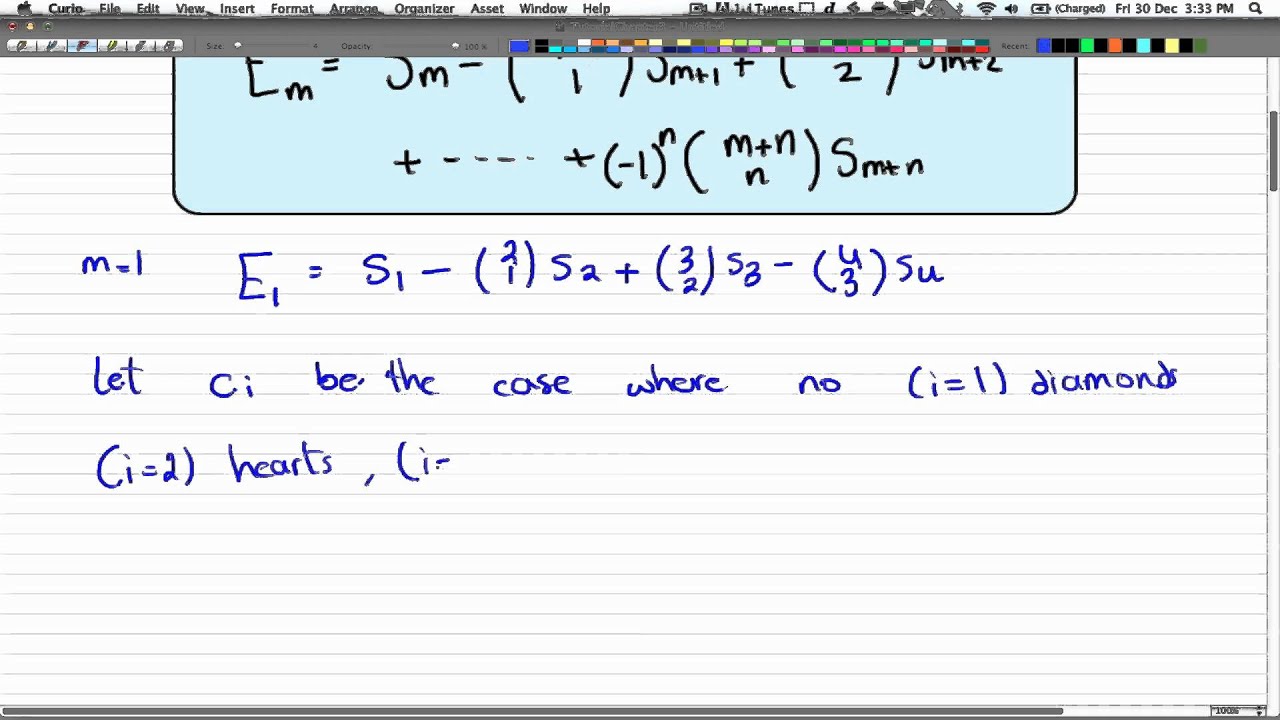 Curio File Edit View Insert Format Arrange Organizer Asset Window Help (Charged) Fri 30 Dec 3:33 PM
Size: 4 Opacity: 100 % Recent:
E_m = S_m - ( 1 ) S_m+1 + ( 2 ) S_m+2
+ ----- + (-1)^n (m+n n) S_m+n
m=1 E_1 = S_1 - (2 1) S_2 + (3 2) S_3 - (4 3) S_4
Let ci be the case where no (i=1) diamonds
(i=2) hearts , (i=
100%